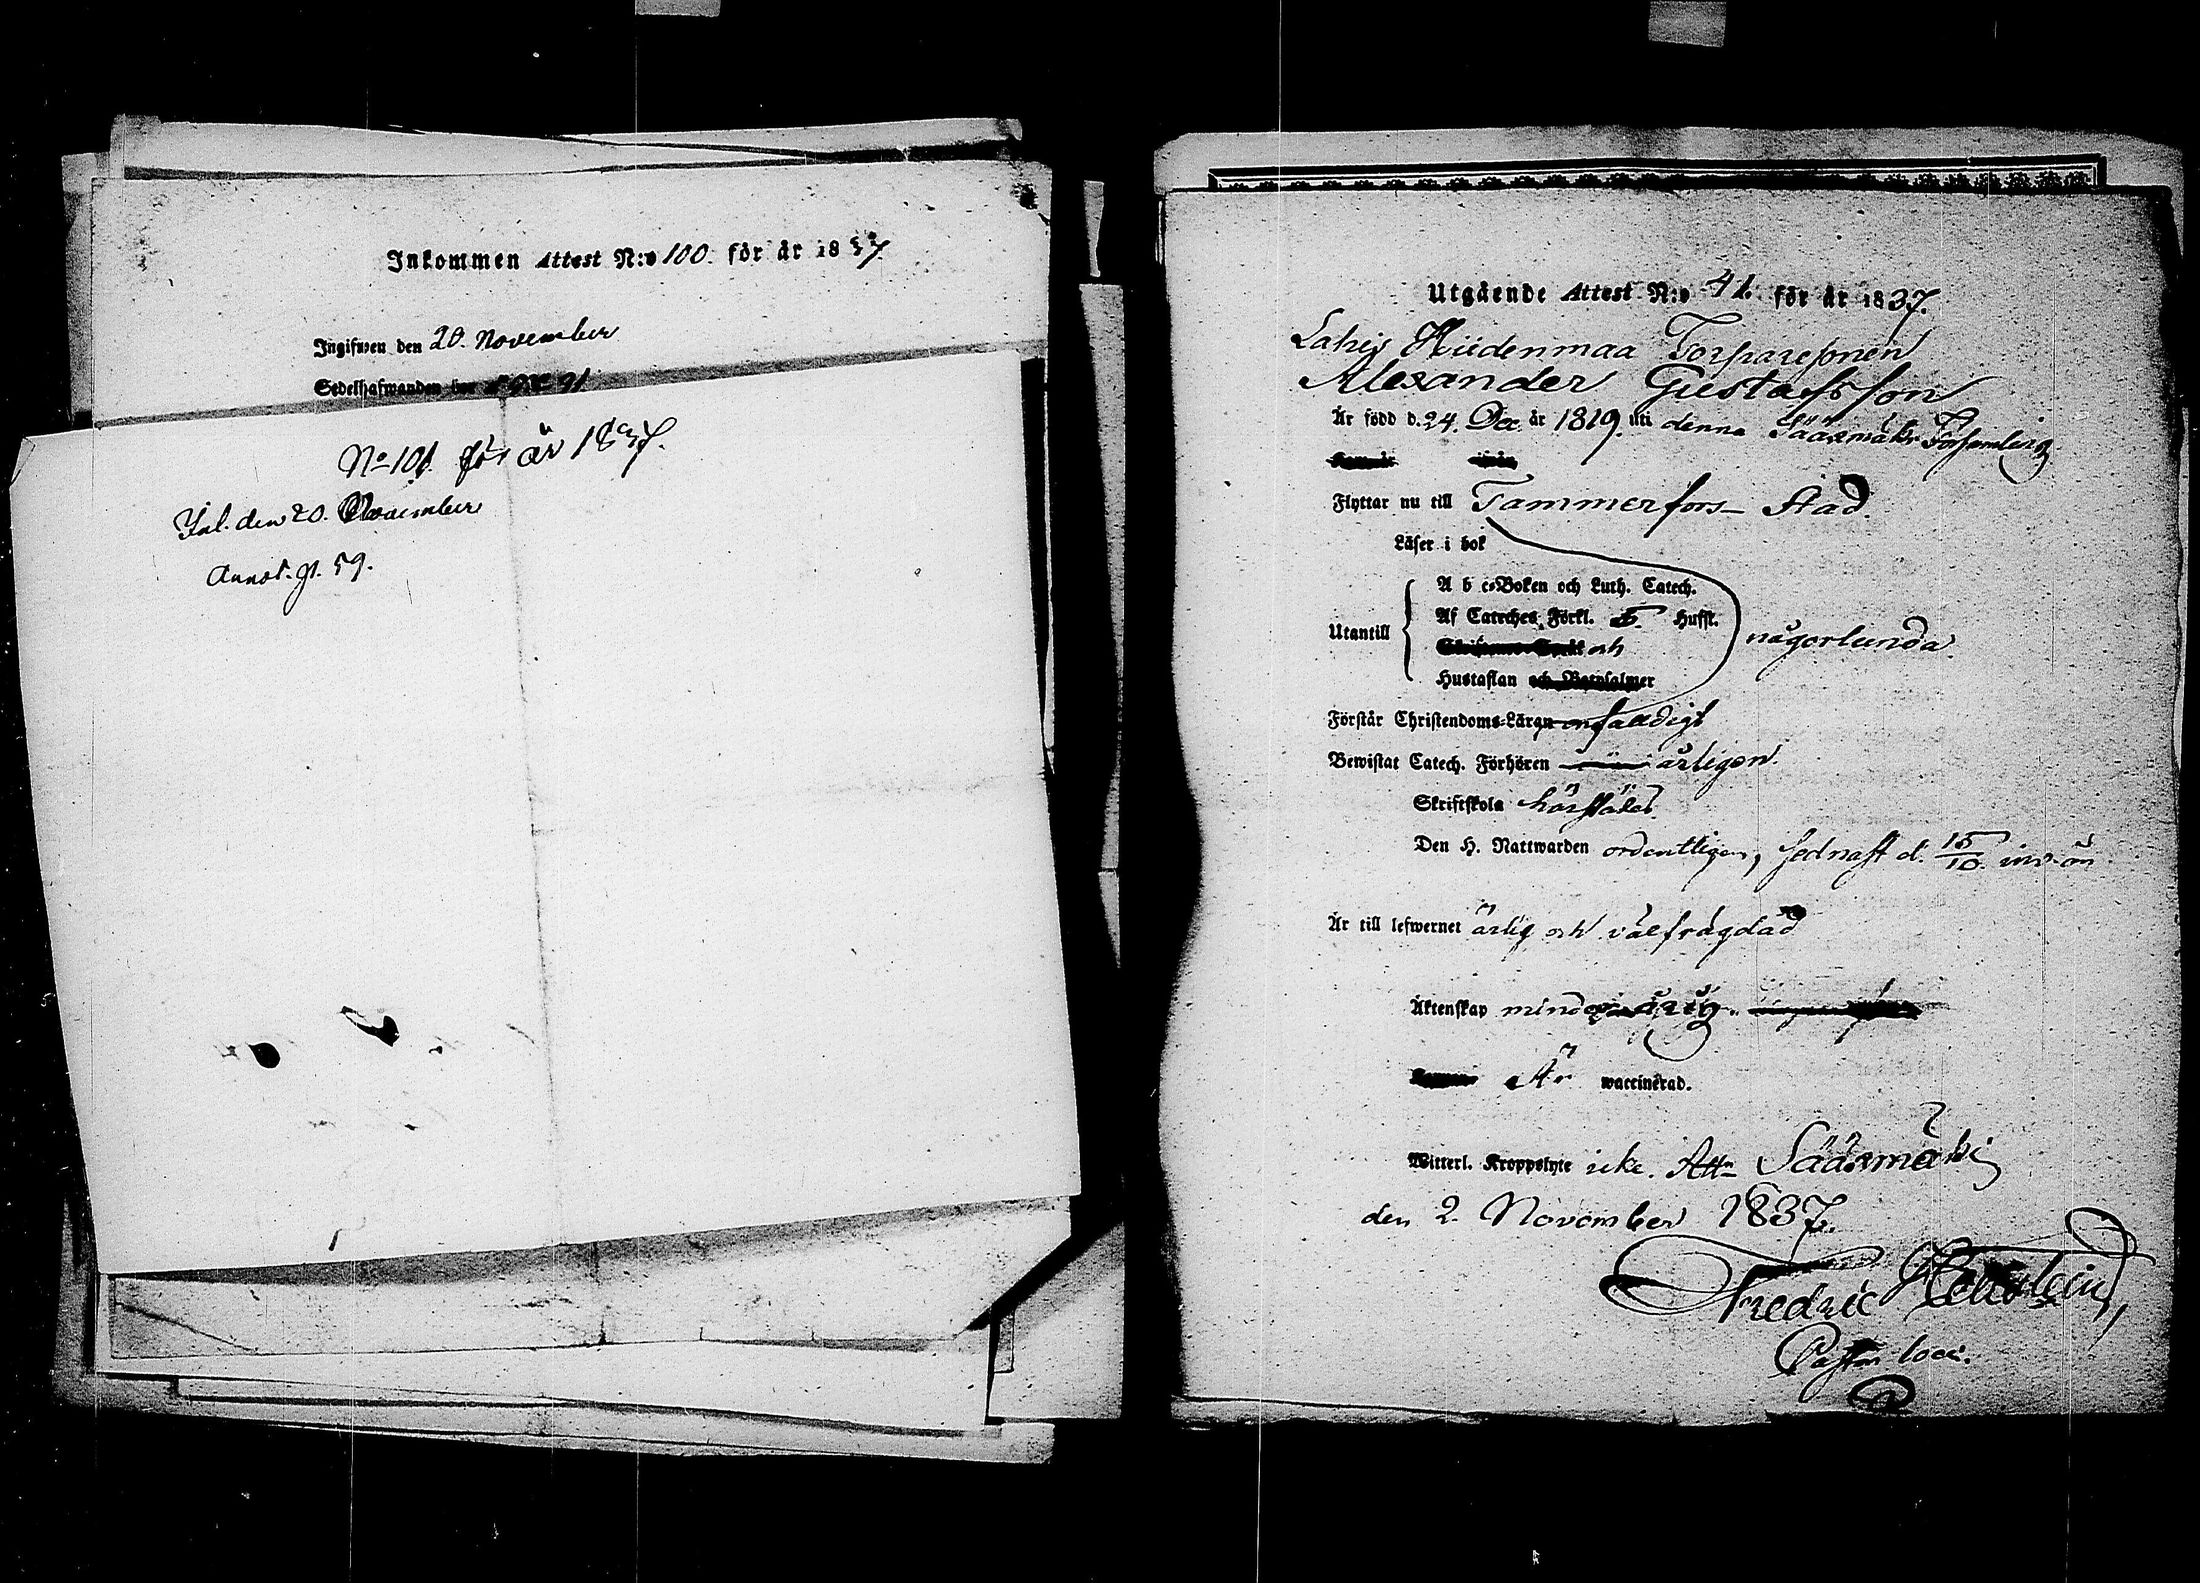 Inkommen Attest N:o 100. för år 1837
Ingifwen den 20. November
Sedelhafwanden bor
No 101. för år 1837.
Inl. den 20. November
Annot. p. 59.
Utgående Attest N:o 41. för år 1837.
Lahis Hiidenmaa Torparesonen
Alexander Gustafsson
Är född d. 24. Dec. år 1819. uti denna Sääxmäki Församling
Flyttar nu till Tammerfors Stad.
Läser i bok
A b c-Boken och Luth. Catech.
Utantill Af Cateches Förkl. 5. Hufst. någorlunda.
och
Hustaflan
Förstår Christendoms-Läran enfaldigt
Bewistat Catech. Förhören årligen.
Skriftskola härstädes.
Den H. Nattwarden ordentligen, sednast d. 15/10. inv. år
Är till lefwernet ärlig och välfrägdad
Äktenskap minderårig.
Är waccinerad.
Witterl. Kroppslyte icke. Att. Sääxmäki
den 2. November 1837.
Fredric
Pastor loci.